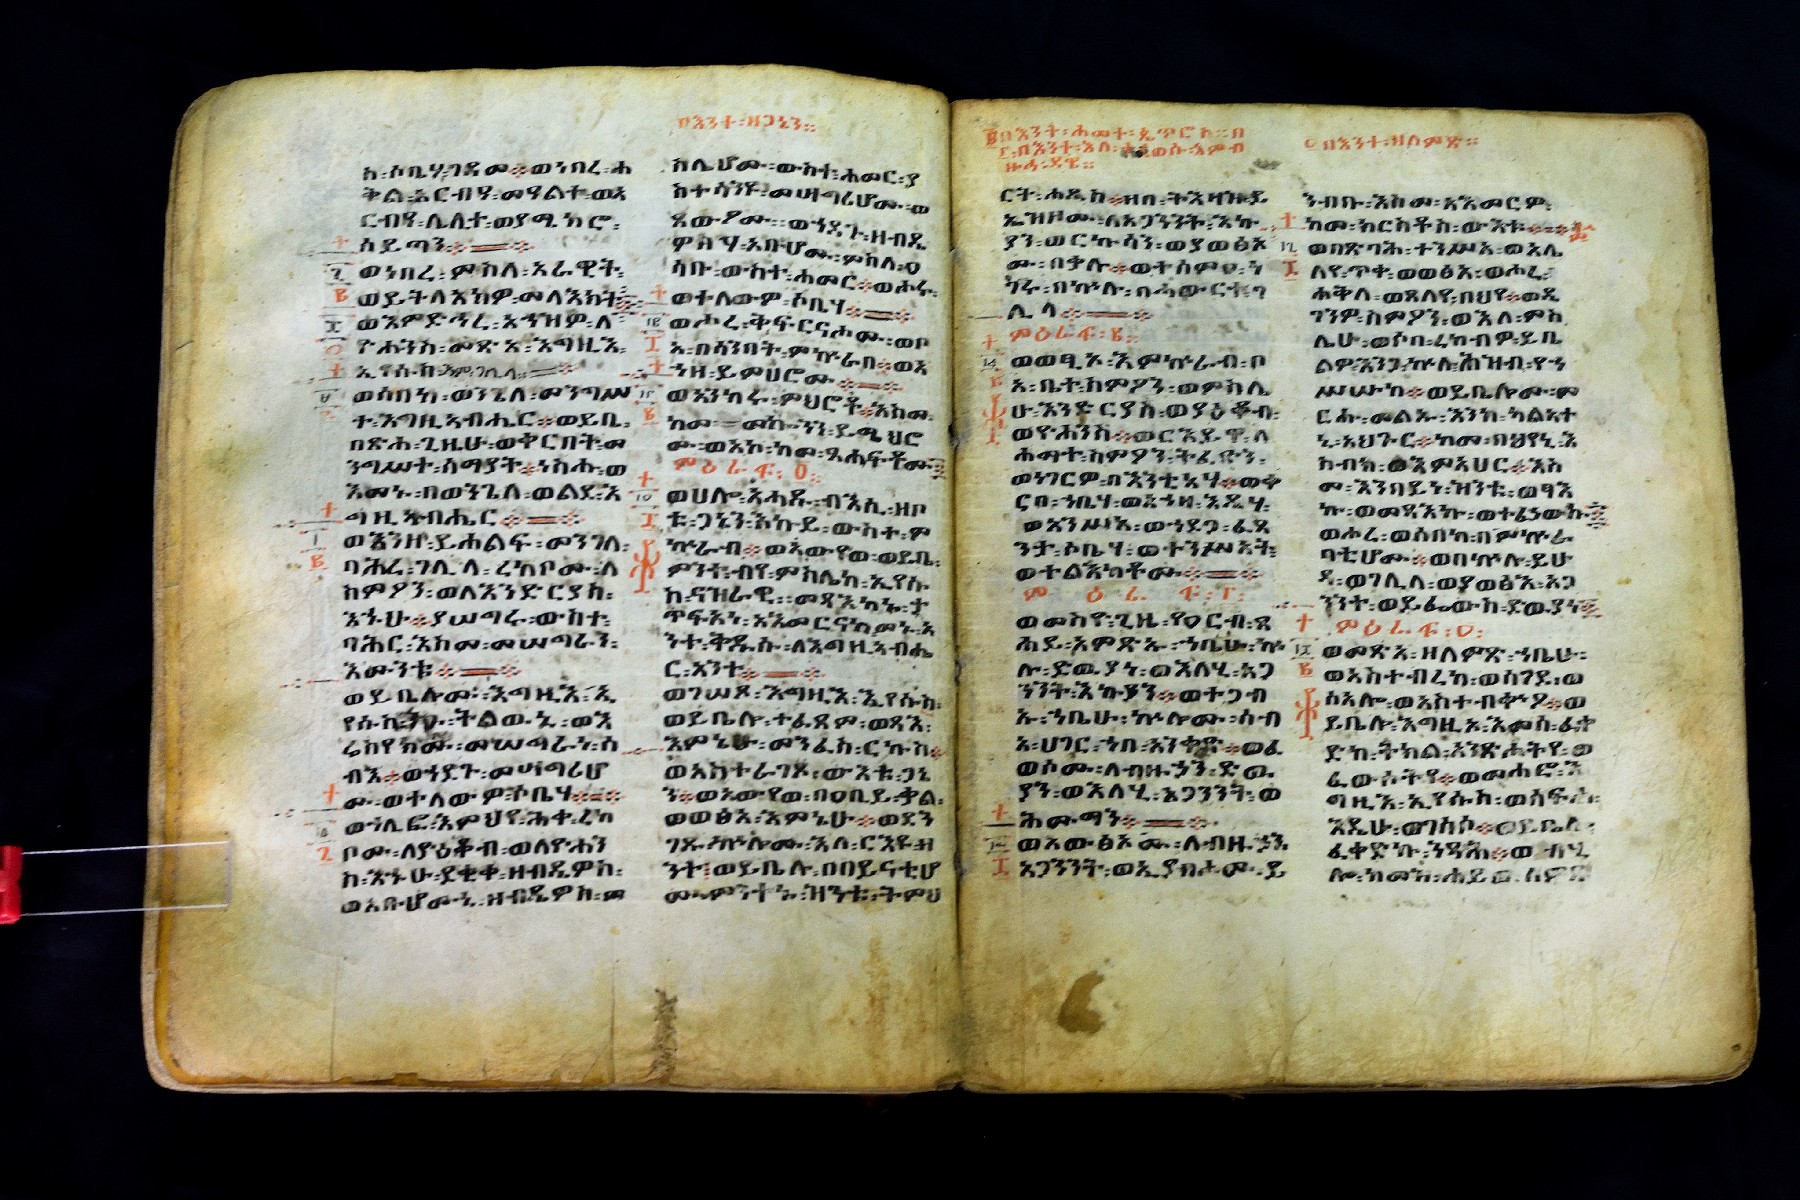 ስ፡ሶቤሃ፡ገዳመ፡ወነበረ፡ሐ
ቅለ፡አርብዓ፡መዓልተ፡ወአ
ርብዓ፡ሌሊተ፡ወያሜክሮ፡
ሰይጣን፨
ወነበረ፡ምስለ፡አራዊት፡
ወይትለአክዎ፡መላእክት፡
ወእምድኅረ፡አኀዝዎ፡ለ
ዮሐንስ፡መጽአ፡እግዚእ፡
ኢየሱስ፡እምገሊላ፨
ወሰበከ፡ወንጌለ፡መንግሥ
ተ፡እግዚአብሔር፨ወይቤ፡
በጽሐ፡ጊዜሁ፡ወቀርበት፡መ
ንግሥተ፡ሰማያት፨ነስሑ፡ወ
እመኑ፡በወንጌለ፡ወልደ፡እ
ግዚአብሔር፨
ወእንዘ፡ይሐልፍ፡መንገለ፡
ባሕረ፡ገሊላ፡ረከቦሙ፡ለ
ስምዖን፡ወለእንድርያስ፡
እኁሁ፨ያሠግሩ፡ውስተ፡
ባሕር፡እስመ፡መሠግራን፡
እሙንቱ፨
ወይቤሎሙ፡እግዚእ፡ኢ
የሱስ፡ንዑ፡ትልውኒ፡ወእ
ሬስየክሙ፡መሠግራነ፡ሰ
ብእ፨ወኀደጉ፡መሣግሪሆ
ሙ፡ወተለውዎ፡ሶቤሃ፨
ወኀሊፎ፡እምህየ፡ሕቀ፡ረከ
ቦሙ፡ለያዕቆብ፡ወለዮሐን
ስ፡እኁሁ፡ደቂቀ፡ዘብዴዎስ፡
ወአቡሆሙኒ፡ዘብዴዎስ፡ም
በእንተ፡ዘጋኔን።
ስሌሆሙ፡ውስተ፡ሐመር፡ያ
ስተሳንዩ፡መሣግሪሆሙ፡ወ
ጸውዖሙ፡ወኀደጉ፡ዘብዴ
ዎስሃ፡አቡሆሙ፡ምስለ፡ዐ
ሳቡ፡ውስተ፡ሐመር፨ወሖሩ፡
ወተለውዎ፡ሶቤሃ፨
ወሖረ፡ቅፍርናሖሙ፡ወቦ
አ፡በሳንበት፡ምኵራበ፨ወእ
ንዘ፡ይምህሮሙ፨
ወአንከሩ፡ምህሮቶ፨እስመ፡
ከመ፡መኰንን፡ይሜህሮ
ሙ፡ወአኮ፡ከመ፡ጸሐፍቶሙ፨
ምዕራፍ፡፩፡
ወሀሎ፡አሐዱ፡ብእሲ፡ዘቦ
ቱ፡ጋኔን፡እኩይ፡ውስተ፡ም
ኵራብ፨ወአውየወ፡ወይቤ፡
ምንት፡ብየ፡ምስሌከ፡ኢየሱ
ስ፡ናዝራዊ፡መጻእከኑ፡ታ
ጥፍአነ፡አአምርናከ፡መኑ፡አ
ንተ፡ቅዱሱ፡ለእግዚአብሔ
ር፡አንተ፨
ወገሠጾ፡እግዚእ፡ኢየሱስ፡
ወይቤሎ፡ተፈጸም፡ወጻእ፡
እምኔሁ፡መንፈስ፡ርኩስ፨
ወአስተራገጾ፡ውእቱ፡ጋኔ
ን፨ወአውየወ፡በዐቢይ፡ቃል፡
ወወፅአ፡እምኔሁ፨ወደን
ገጹ፡ኵሎሙ፡እለ፡ርእዩ፡ዘ
ንተ፡ወይቤሉ፡በበይናቲሆ
ሙ፡ምንተኑ፡ዝንቱ፡ትምህ
፪በእንተ፡ሐማተ፡ጴጥሮስ።በ
፫፡በእንተ፡እለ፡ሐይወ፡እምብ
ዙኅ፡ደዌ።
ርት፡ሐዲስ፨ዘበ፡ትእዛዙ፡ይ
ኤዝዞሙ፡ለአጋንንት፡እኩ
ያን፡ወርኩሳን፡ወያወፅኦ
ሙ፡በቃሉ፨ወተሰምዐ፡ነ
ገሩ፡በኵሉ፡በሓውርተ፡ገ
ሊላ፨
ምዕራፍ፡፪፡
ወወፂኦ፡እምኵራብ፡ቦ
አ፡ቤተ፡ስምዖን፡ወምስሌ
ሁ፡እንድርያስ፡ወያዕቆብ፡
ወዮሐንስ፨ወርእይዋ፡ለ
ሐማተ፡ስምዖን፡ትፈፅን፡
ወነገርዎ፡በእንቲአሃ፨ወቀ
ርበ፡ኀቤሃ፡ወአኀዛ፡እዴሃ፡
ወአንሥአ፡ወኀደጋ፡ፈጸ
ንታ፡ሶቤሃ፡ወተንሥአት፡
ወተልእከቶሙ፨
ምዕራፍ፡፫፡
ወመስየ፡ጊዜ፡የዐርብ፡ፀ
ሐይ፡አምጽኡ፡ኀቤሁ፡ኵ
ሎ፡ድውያነ፡ወእለሂ፡አጋ
ንንት፡እኩያን፨ወተጋብ
ኡ፡ኀቤሁ፡ኵሎሙ፡ሰብ
አ፡ሀገር፡ኀበ፡አንቀጽ፨ወፈ
ወሶሙ፡ለብዙኃን፡ድው
ያን፡ወእለሂ፡አጋንንት፡ወ
ሕሙማን፨
ወአውፅአሙ፡ለብዙኃን፡
አጋንንት፡ወኢያብሖሙ፡ይ
፬በእንተ፡ዘለምጽ።
ንብቡ፡እስመ፡አአመርዎ፡
ከመ፡ክርስቶስ፡ውእቱ፨
ወበጽባሕ፡ተንሥአ፡ወአሌ
ለየ፡ጥቀ፡ወወፅአ፡ወሖረ፡
ሐቅለ፡ወጸለየ፡በህየ፨ወዴ
ገንዎ፡ስምዖን፡ወእለ፡ምስ
ሌሁ፡ወሶበ፡ረከብዎ፡ይቤ
ልዎ፡እንጋ፡ኵሉ፡ሕዝብ፡የኀ
ሥሡከ፨ወይቤሎሙ፡ም
ርሑ፡መልኡ፡እንከ፡ካልአተ
ኒ፡አህጉር፨ከመ፡በህየኒ፡እ
ስብክ፡ወእምአህር፨እስ
መ፡እንበይነ፡ዝንቱ፡ወፃእ
ኩ፡ወመጻእኩ፡ወተፈኖውኩ፨
ወሖረ፡ወሰበከ፡በምኵራ
ባቲሆሙ፨ወበኵሉ፡ይሁ
ዳ፡ወገሊላ፡ወያወፅእ፡አጋ
ንንተ፡ወይፌውስ፡ድዉያነ፨
ምዕራፍ፡፬፡
ወመጽአ፡ዘለምጽ፡ኀቤሁ፡
ወአስተብረከ፡ወሰገደ፡ወ
ሰአሎ፡ወአስተብቍዖ፨ወ
ይቤሎ፡እግዚኦ፡እመሰ፡ፈቀ
ድከ፡ትክል፡አንጽሖትየ፡ወ
ፈውሶትየ፨ወመሐሮ፡እ
ግዚእ፡ኢየሱስ፡ወሰፍሐ፡
እዴሁ፡ወገሰሶ፨ወይቤሎ፡
ፈቀድኩ፡ንጻሕ፨ወ